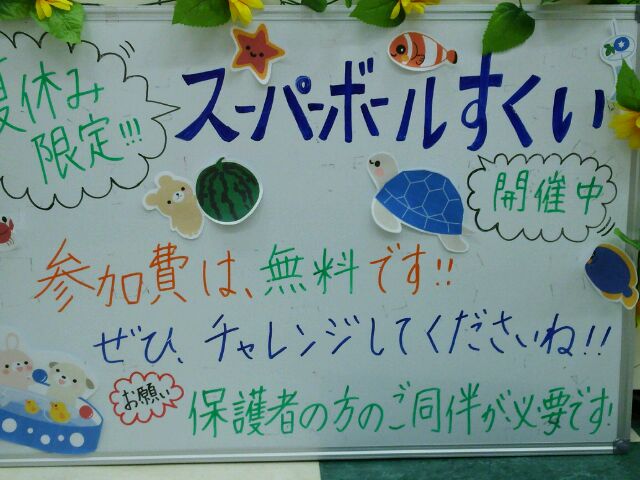 夏休み
限定!!!
スーパーボールすくい
開催中
参加費は、無料です!!
ぜひ、チャレンジしてくださいね!!
お願い
保護者の方のご同伴が必要です